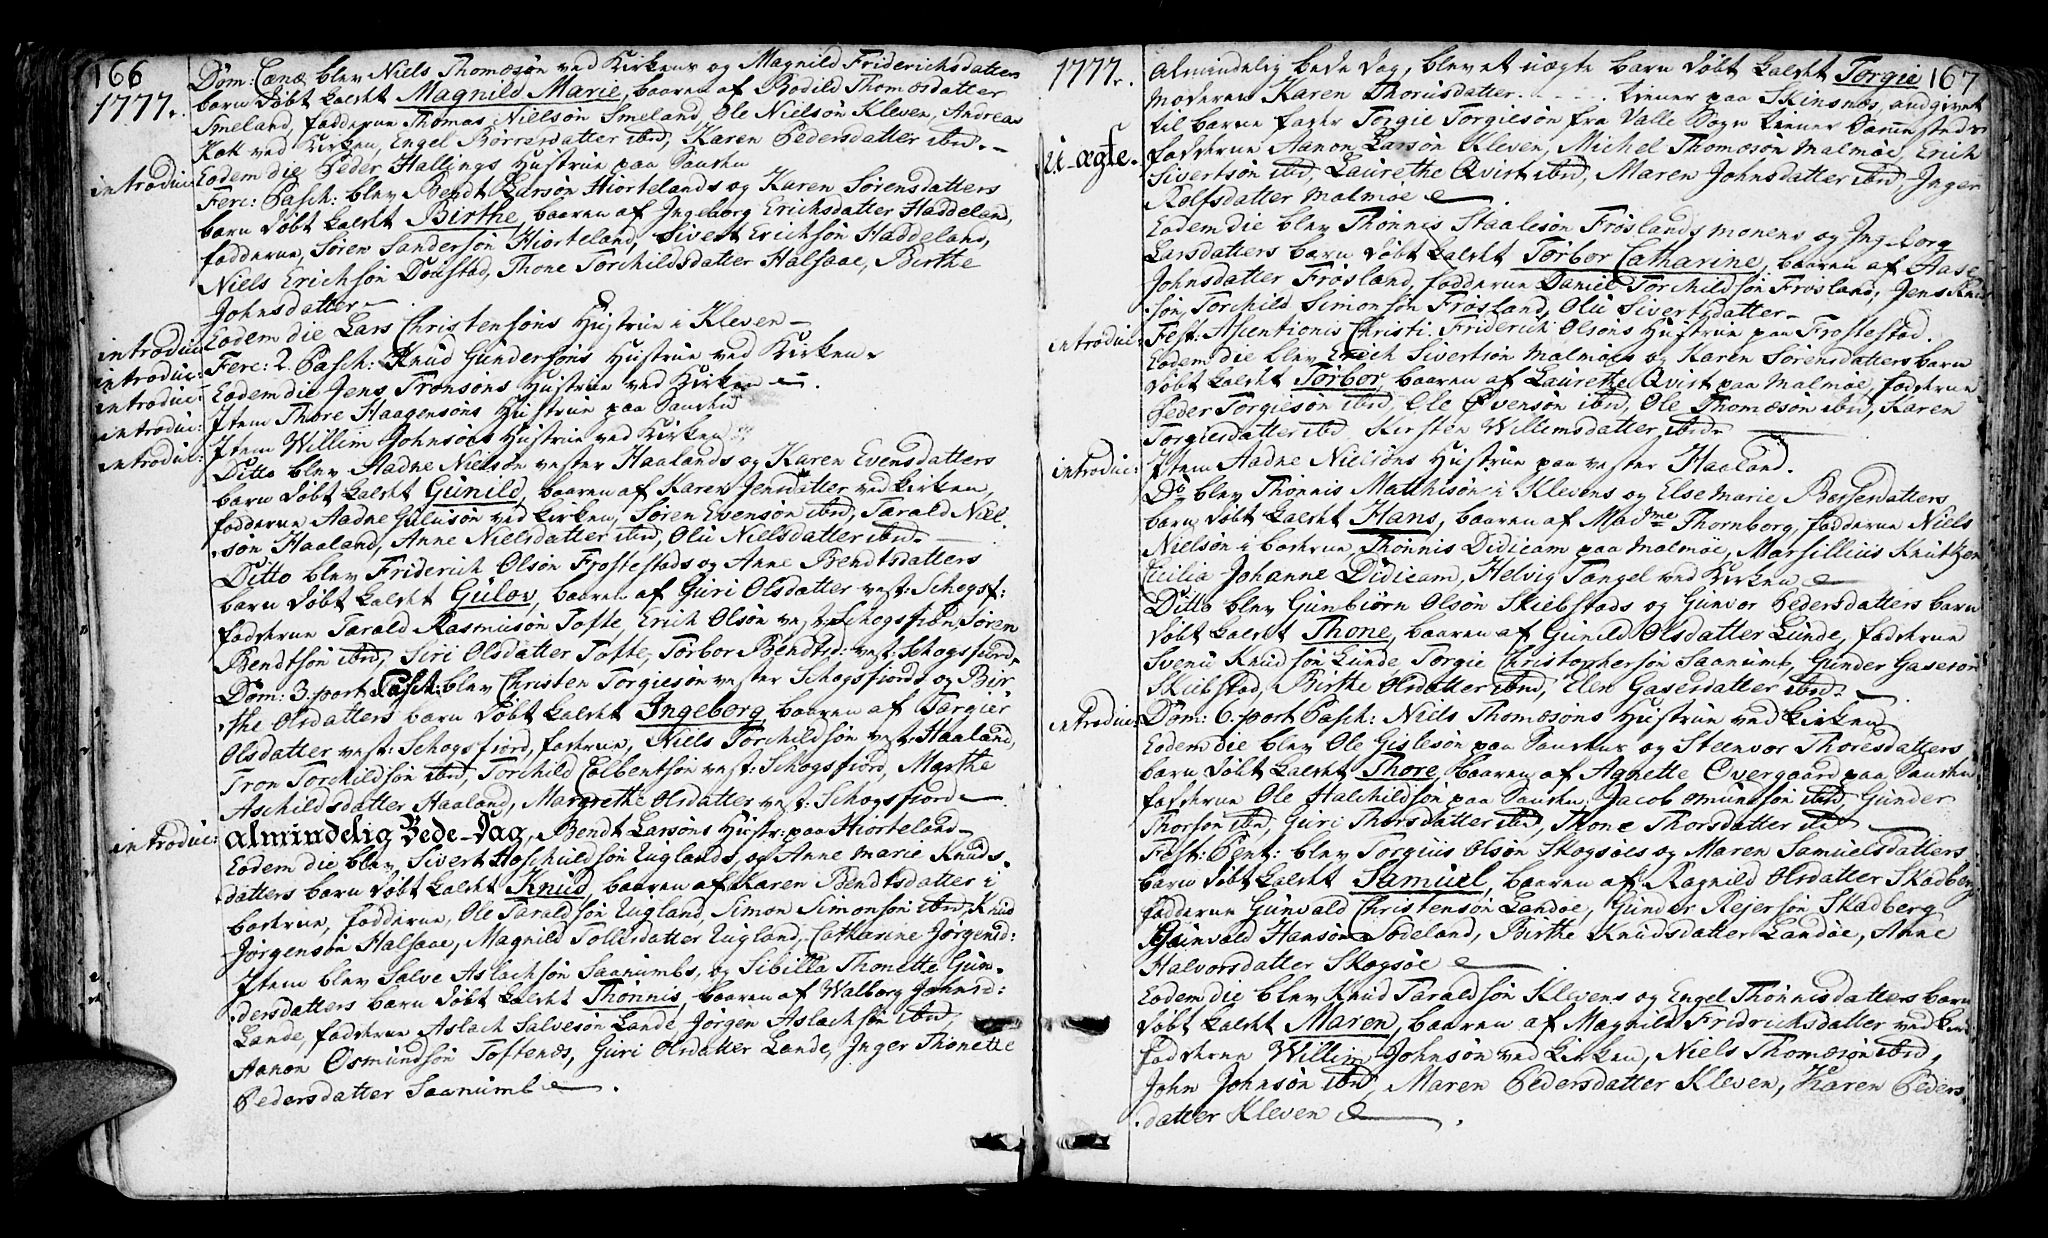 166
1777.
Dom: Cænæ blev Niels Thomæsøn ved Kirkens og Magnild Friderichsdatters
barn døbt kaldet Magnild Marie, baaren af Bodild Thomæsdatter
Smeland, fadderne Thomas Nielsøn Smeland, Ole Nielsøn Kleven, Andreas
Kok ved Kirken, Engel Børresdatter ibid, Karen Pedersdatter ibid.
introduc: Eodem die Peder Hallings Hustrue paa Sanden
Feer: Pasch: blev Bendt Larsøn Hiortelands og Karen Sørensdatters
barn døbt kaldet Birthe, baaren af Ingeborg Erichsdatter Haddeland,
fadderne, Søren Sandersøn Hiorteland, Sivert Erichsøn Haddeland,
Niels Erichsøn Donstad, Thone Torchildsdatter Halsaae, Birthe
Johnsdatter
introduc: Eodem die Lars Christensøns Hustrue i Kleven
introduc: Fere: 2. Pasch: Knud Gundersøns Hustrue ved Kirken.
introduc: Eodem die Jens Tronsøns Hustrue ved Kirken
introduc: Item Thore Haagensøns Hustrue paa Sanden
introduc: Item Willim Johnsøns Hustrue ved Kirken
Ditto blev Aadne Nielsøn vester Haalands og Karen Evensdatters
barn døbt kaldet Gunild, baaren af Karen Jensdatter ved Kirken,
fadderne Aadne Gulusøn ved Kirken, Søren Evensøn ibid, Tarald Niel-
søn Haaland, Anne Nielsdatter ibid, Olu Nielsdatter ibid.
Ditto blev Friderich Olsøn Frostestads og Anne Bendtsdatters
barn døbt kaldet Gulov, baaren af Guri Olsdatter vest: Schogsf:
fadderne Tarald Rasmusøn Tofte, Erich Olsøn vest: Schogsfiord, Søren
Bendtsøn ibid, Siri Olsdatter Tofte, Torbor Bendtsd: vest: Schogsfiord.
Dom: 3. post Pasch: blev Christen Torgiesøn vester Schogsfiords og Bir-
the Olsdatters barn døbt kaldet Ingeborg, baaren af Targier
Olsdatter vest: Schogsfiord, fadderne, Niels Torchildsøn vest: Haaland,
Tron Torchildsøn ibid, Torchild Colbentsøn vest: Schogsfiord, Marthe
Aschildsdatter Haaland, Margrethe Olsdatter vest: Schogsfiord
introduc: Almindelig Bede-Dag, Bendt Larsøns Hustr: paa Hiorteland
Eodem die blev Sivert Høschuldsøn Uglands, og Anne Marie Knuds-
datters barn døbt kaldet Knud, baaren af Karen Bendtsdatter i
barkerne, fadderne, Ole Taraldsøn Ugland, Simon Simonsøn ibid, Knud
Jørgensøn Halsaae, Magnild Tollisdatter Ugland, Catharine Jørgensd:
Item blev Salve Aslachsøn Saanumbs, og Sibilla Thonette Gun-
dersdatters barn døbt kaldet Thønnis, baaren af Walborg Johnsd:
Lande, fadderne Aslach Salvesøn Lande, Jørgen Aslachsøn ibid,
Aanon Osmundsøn Toftenæs, Guri Olsdatter Lande, Inger Thonette
Pedersdatter Saanumb.
167
1777.
Almindelig bede dag, blev et uægte barn døbt kaldet Torgie
Moderen Karen Thorisdatter. tiener paa Skinsnæs, andgivet
til barne fader Torgie Torgiesøn fra Valle Sogn tiener Sammesteds
U-ægte. fadderne Aanon Larsøn Kleven, Michel Thomæsøn Malmøe, Erich
Sivertsøn ibid, Laurethe Qvirt ibid, Maren Johnsdatter ibid, Inger
Rolfsdatter Malmøe
Eodem die blev Thønnis Staalesøn Frøslands monens og Ingeborg
Larsdatters barn døbt kaldet Torbor Catharine, baaren af Aase
Johnsdatter Frøsland, fadderne Daniel Torchildsøn Frøsland, Jens Knud
søn, Torchild Simonsøn Frøsland, Olu Sivertsdatter
introduc: Fest: Asentionis Christi. Friderich Olsøns Hustrue paa Frostestad.
Eodem die blev Erich Sivertsøn Malmøes og Karen Sørensdatters barn
døbt kaldet Torbor, baaren af Laurethe Qvirt paa Malmøe, fadderne
Peder Torgiesøn ibid, Ole Øvensøn ibid, Ole Thomæsøn ibid, Karen
Torgiesdatter ibid Kirsten Willimsdatter ibid
introduc: Item Aadne Nielsøns Hustrue paa vester Haaland.
Do blev Thønnis Matthisøn i Klevens og Else Marie Børsesdatters
barn døbt kaldet Hans, baaren af Madme Thornborg, fadderne Niels
Nielsøn i barkerne, Thønnis Didicam paa Malmøe, Marsillius Knutzen
Cicilia Johanne Didicam, Helvig Tangel ved Kirken
Ditto blev Gunbiørn Olsøn Skiebstads og Gunvor Pedersdatters barn
døbt kaldet Thone, baaren af Gunild Olsdatter Lunde, fadderne
Svenu Knudsøn Lunde Torgie Christophersøn Saanumb, Gunder Gasesøn
Skiebstad, Birthe Olsdatter ibid, Elen Gasesdatter ibid.
introduc: Dom: 6. post Pasch: Niels Thomæsøns Hustrue ved Kirken
Eodem die blev Ole Gislesøn paa Sandens og Steenvor Thoresdatters
barn døbt kaldet Thore, baaren af Agnette Overgaard paa Sanden
fadderne Ole Halchildsøn paa Sanden, Jacob Omundsøn ibid, Gunder
Thorsøn ibid, Guri Thorsdatter ibid, Thone Thorsdatter ibid
Fest: Pent: blev Torgius Olsøn Skogsøes og Maren Samuelsdatters
barn døbt kaldet Samuel, baaren af Ragnild Olsdatter Skadberg
fadderne Gunvald Christensøn Landøe, Gunder Rejersøn Skadberg
Gunvald Hansøn Jodeland, Birthe Knudsdatter Landøe, Anne
Halvorsdatter Skogsøe
Eodem die blev Knud Taraldsøn Klevens og Engel Thønnisdatters barn
døbt kaldet Maren, baaren af Magnild Fridrichsdatter ved Kirk
fadderne Willim Johnsøn ved Kirken, Niels Thomæsøn ibid,
John Johnsøn ibid, Maren Pedersdatter Kleven, Karen Peders-
datter Kleven